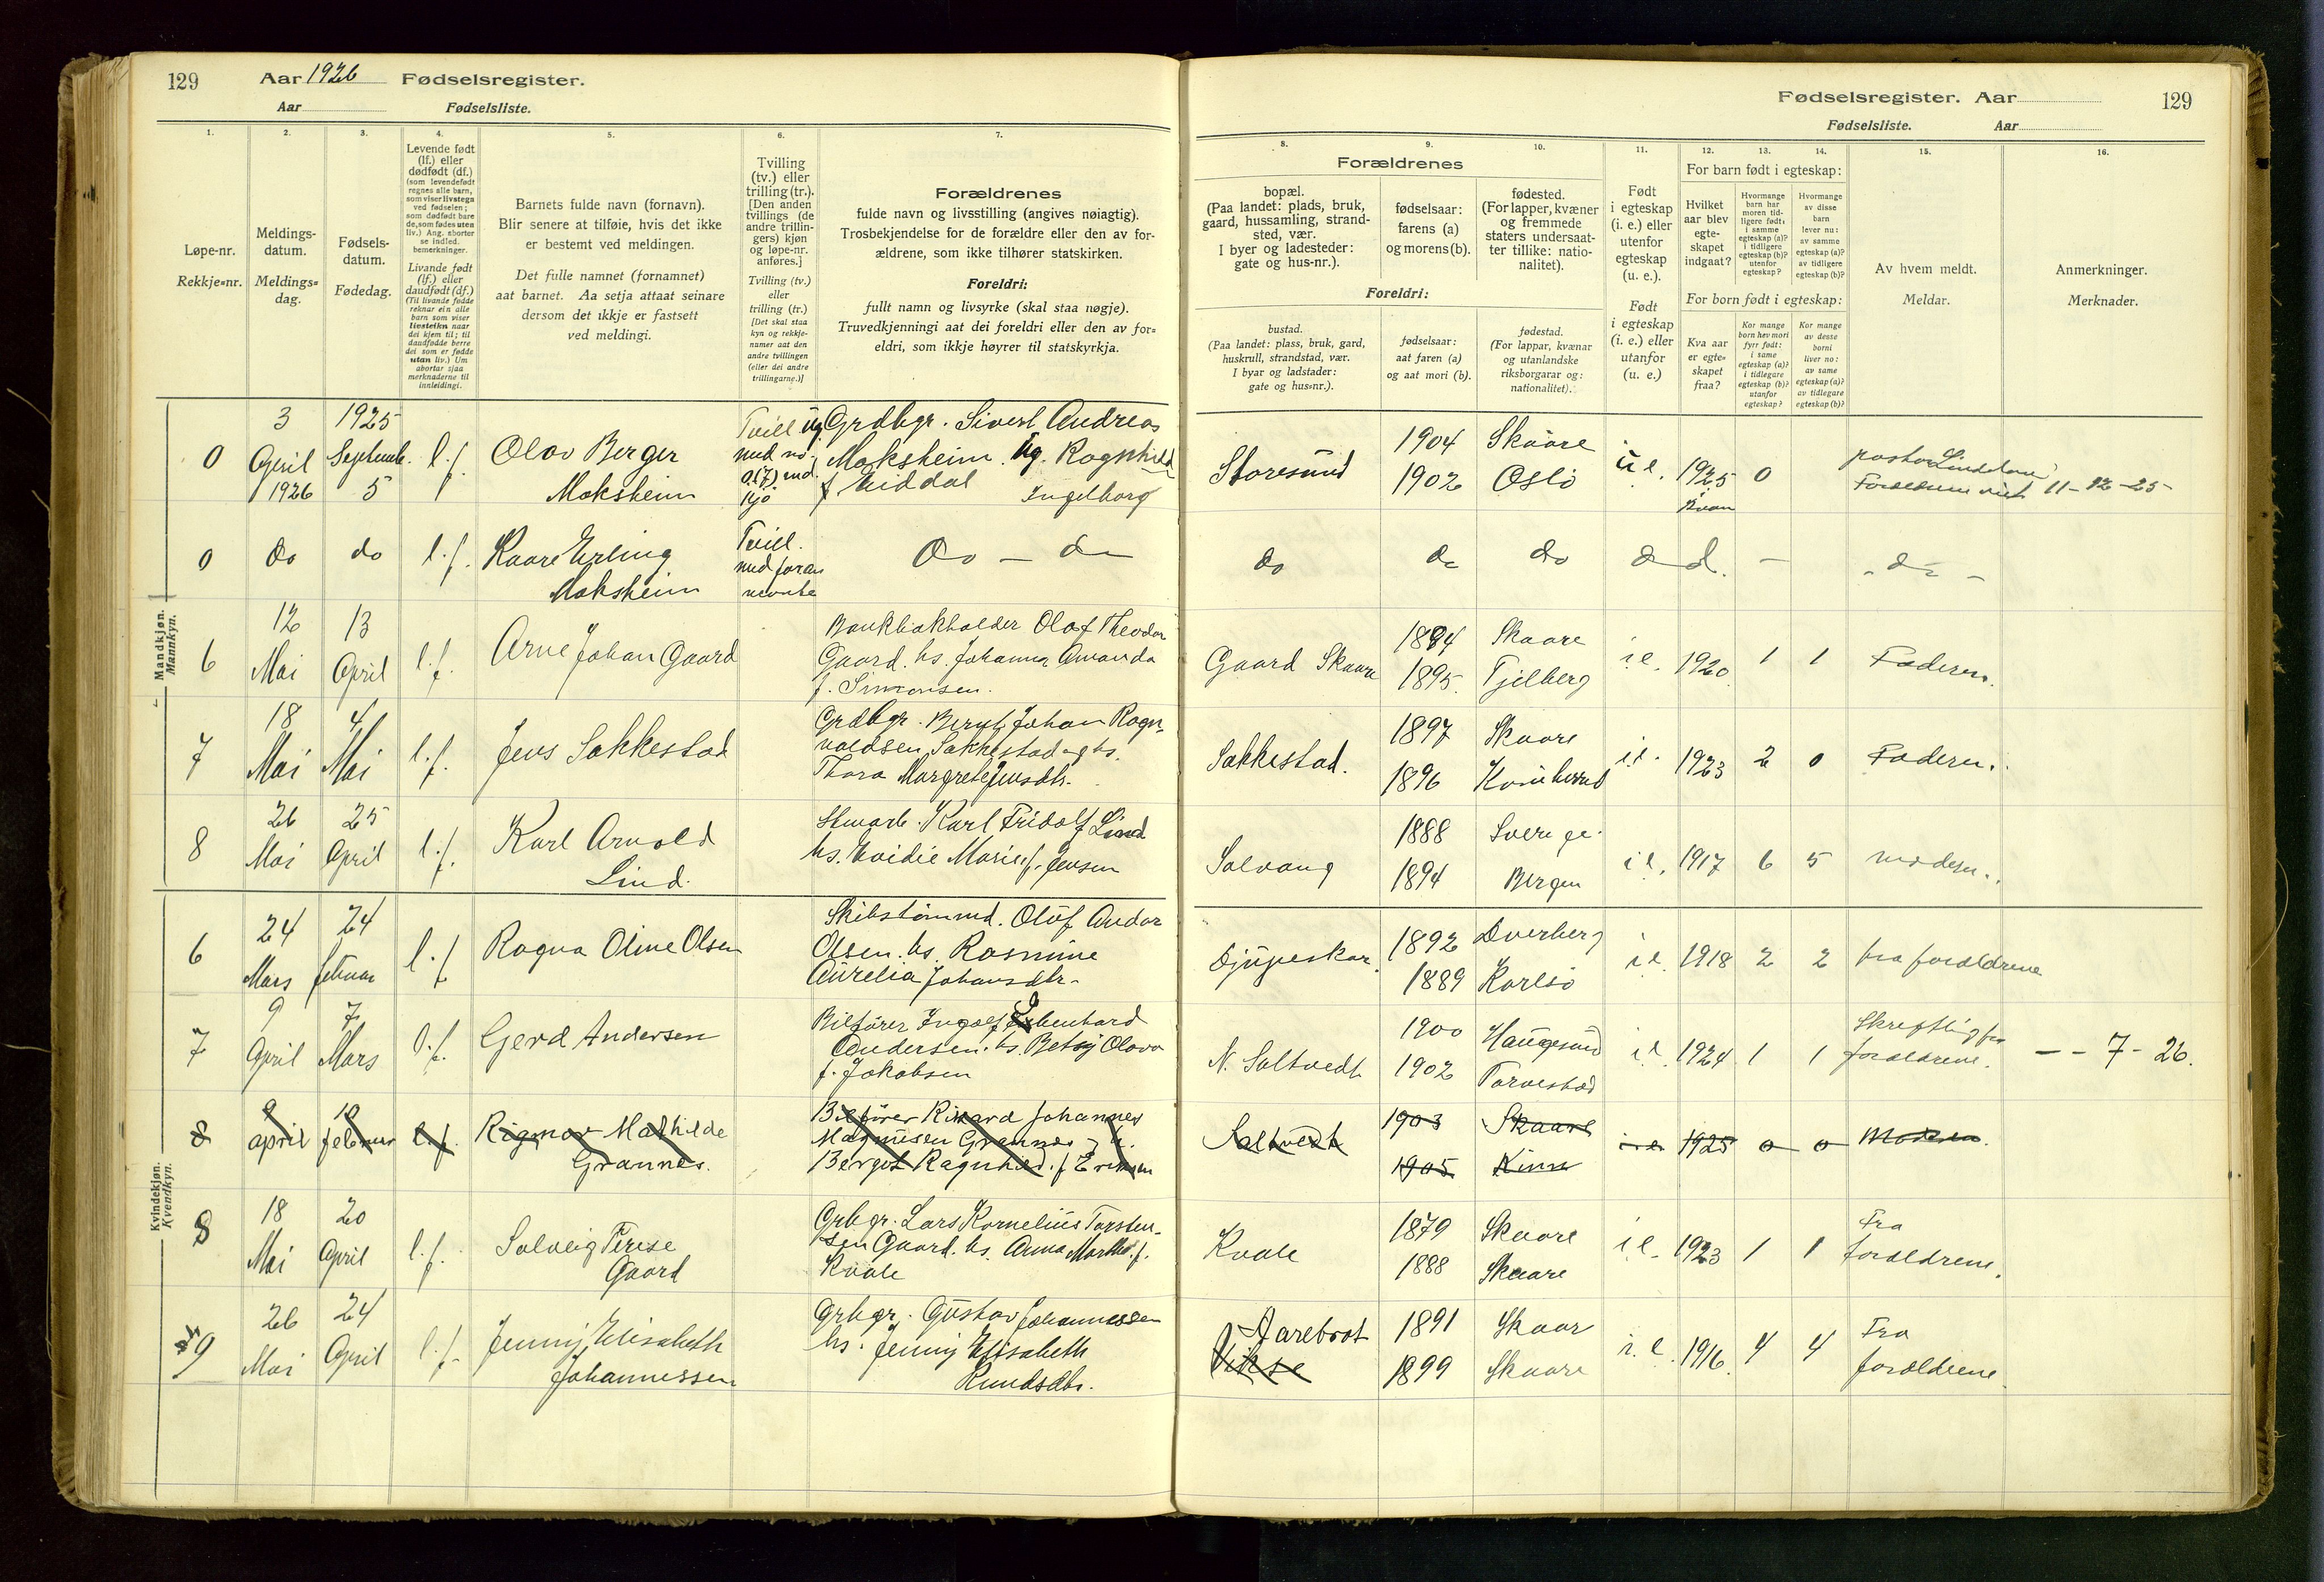 129
Aar 1926 Fødselsregister.
Aar Fødselsliste.
1.
2.
3.
4.
5.
6.
7.
Løpe-nr.
Rekkje=nr.
Meldings-
datum.
Meldings=
dag.
Fødsels-
datum.
Fødedag.
Levende født
(lf.) eller
dødfødt (df.)
(som levendefødt
regnes alle barn,
som viser livstegn
ved fødselen;
som dødfødt bare
de, som fødes uten
liv.) Ang. aborter
se indled.
bemerkninger.
Livande født
(lf.) eller
daudfødt (df.)
(Til livande fødde
reknar ein alle
barn som viser
livsteikn naar
dei kjem til; til
daudfødde berre
dei som er fødde
utan liv.) Um
abortar sjaa
merknaderne til
innleidingi.
Barnets fulde navn (fornavn).
Blir senere at tilføie, hvis det ikke
er bestemt ved meldingen.
Det fulle namnet (fornamnet)
aat barnet. Aa setja attaat seinare
dersom det ikkje er fastsett
ved meldingi.
Tvilling
(tv.) eller
trilling (tr.).
[Den anden
tvillings (de
andre trillin-
gers) kjøn
og løpe-nr.
anføres.]
Tvilling (tv.)
eller
trilling (tr.)
[Det skal staa
kyn og rekkje-
numer aat den
andre tvillingen
(eller dei andre
trillingarne.)]
Forældrenes
fulde navn og livsstilling (angives nøiagtig).
Trosbekjendelse for de forældre eller den av for-
ældrene, som ikke tilhører statskirken.
Foreldri:
fullt namn og livsyrke (skal staa nøgje).
Truvedkjenningi aat dei foreldri eller den av for=
eldri, som ikkje høyrer til statskyrkja.
Mandkjøn.
Mannkyn.
0
3
April
1926
1925
Septemb.
5
l.f.
Olav Berger
Moksheim
Tvill
med no.
Grdbgr. Sivert Andreas
Moksheim. Ug. Ragnhild
Ingeborg
0
do
do
l.f.
Kaare Erling
Moksheim
Tvill.
med foran
Do — do
6
12
Mai
13
April
l.f.
Arne Johan Gaard
Bankbokholder Olaf Theodor
Gaard. hs. Johanna Amanda
f. Simonsen.
7
18
Mai
4
Mai
l.f.
Jens Sakkestad
Grdbgr. Bernt Johan Ragn-
valdsen Sakkestad og hs.
Thora Margrete Jensdtr.
8
26
Mai
25
April
l.f.
Karl Arnold
Lind.
Karl Fridolf Lind
hs. Marie f. Jensen
Kvindekjøn.
Kvendkyn.
6
24
Mars
24
februar
l.f.
Ragna Oline Olsen
Skibstømmd. Oluf Andor
Olsen. hs. Rasmine
Aurelia Johansdtr.
7
9
April
7
Mars
l.f.
Gerd Andersen
Bilfører Ingolf
Andersen. hs. Betsy Olava
f. Jakobsen
8
9
april
februar
l.f.
Rigmor Mathilde
Grannes.
Bilfører Rikard Johannes
Magnusen Grannes og h.
Berget Ragnhild. f Eriksen
8
18
Mai
20
April
l.f.
Solveig Terese
Gaard
Grbgr. Lars Kornelius Torsten-
sen Gaard. hs. Anna Martha. f.
Kvale
9
26
Mai
24
April
l.f.
Jenny Elisabeth
Johannessen
Grbgr. Gustav Johannessen
hs. Jenny Elisabeth
Knudsdtr.
Fødselsregister. Aar
129
Fødselsliste. Aar
8.
9.
10.
11.
12.
13.
14.
15.
16.
Forældrenes
bopæl.
(Paa landet: plads, bruk,
gaard, hussamling, strand-
sted, vær.
I byer og ladesteder:
gate og hus-nr.).
fødselsaar:
farens (a)
og morens (b).
fødested.
(For lapper, kvæner
og fremmede
staters undersaat-
ter tillike: natio-
nalitet).
Foreldri:
bustad.
(Paa landet: plass, bruk, gard,
huskrull, strandstad, vær.
I byar og ladstader:
gate og hus=nr.).
fødselsaar:
aat faren (a)
og aat mori (b).
fødestad.
(For lappar, kvænar
og utanlandske
riksborgarar og:
nationalitet).
Født
i egteskap
(i. e.) eller
utenfor
egteskap
(u. e.).
Født
i egteskap
(i. e.) eller
utanfor
egteskap
(u. e.)
For barn født i egteskap:
Hvilket
aar blev
egte-
skapet
indgaat?
Hvormange
barn har
moren tid-
ligere født:
i samme
egteskap (a)?
i tidligere
egteskap (b)?
utenfor
egteskap?
Hvormange
av disse
barn
lever nu:
av samme
egteskap (a)?
av tidligere
egteskap (b)?
For born født i egteskap:
Kva aar
er egte=
skapet
fraa?
Kor mange
born hev mori
fyrr født:
i same
egteskap (a)?
i tidlegare
egteskap (b)?
utanfor
egteskap?
Kor mange
av desse
borni
liver no:
av same
egteskap (a)?
av tidlegare
egteskap (b)?
Av hvem meldt.
Meldar.
Anmerkninger.
Merknader.
Storesund
1904
1902
Skaare
Oslo
u.e.
1925
0
pastor
Forældrene viet 11-12-25
do
do
do
do
d.
—
- do -
Gaard Skaare
1894
1895.
Skaare
Tjelberg
i.e.
1920
1
1
Faderen.
Sakkestad.
1897
1896
Skaare
i.e.
1923
2
0
Faderen.
Solvang
1888
1894
Sverige.
Bergen
i.e.
1917
6
5
moderen.
Djupeskar.
1892
1889
Dverberg
Karlsö
i.e.
1918
2
2
fra forældrene
N. Saltvedt
1900
1902
Haugesund
Torvestad
i.e.
1924
1
1
Skriftlig fra
forældrene.
— - 7 - 26.
Saltvedt
1903
1905
Skaare
Kinn
i e
1925
0
0
Moderen.
Kvale
1879
1888
Skaare
Skaare
i.e.
1923
1
1
Fra
forældrene.
Aarebrot
Vikse
1891
1899
Skaar
Skaare
i.e.
1916
4
4
Fra
forældrene